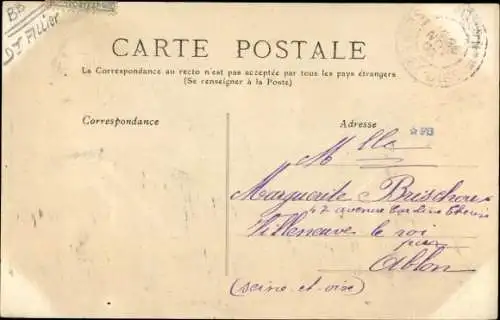 BB
Dt Allier
CARTE POSTALE
La Correspondance au recto n'est pas acceptée par tous les pays étrangers
(Se renseigner à la Poste)
Correspondance
Adresse
Mlle
Marguerite Brischoux
47 avenue
Villeneuve le roi
par
Ablon
(Seine-et-oise)